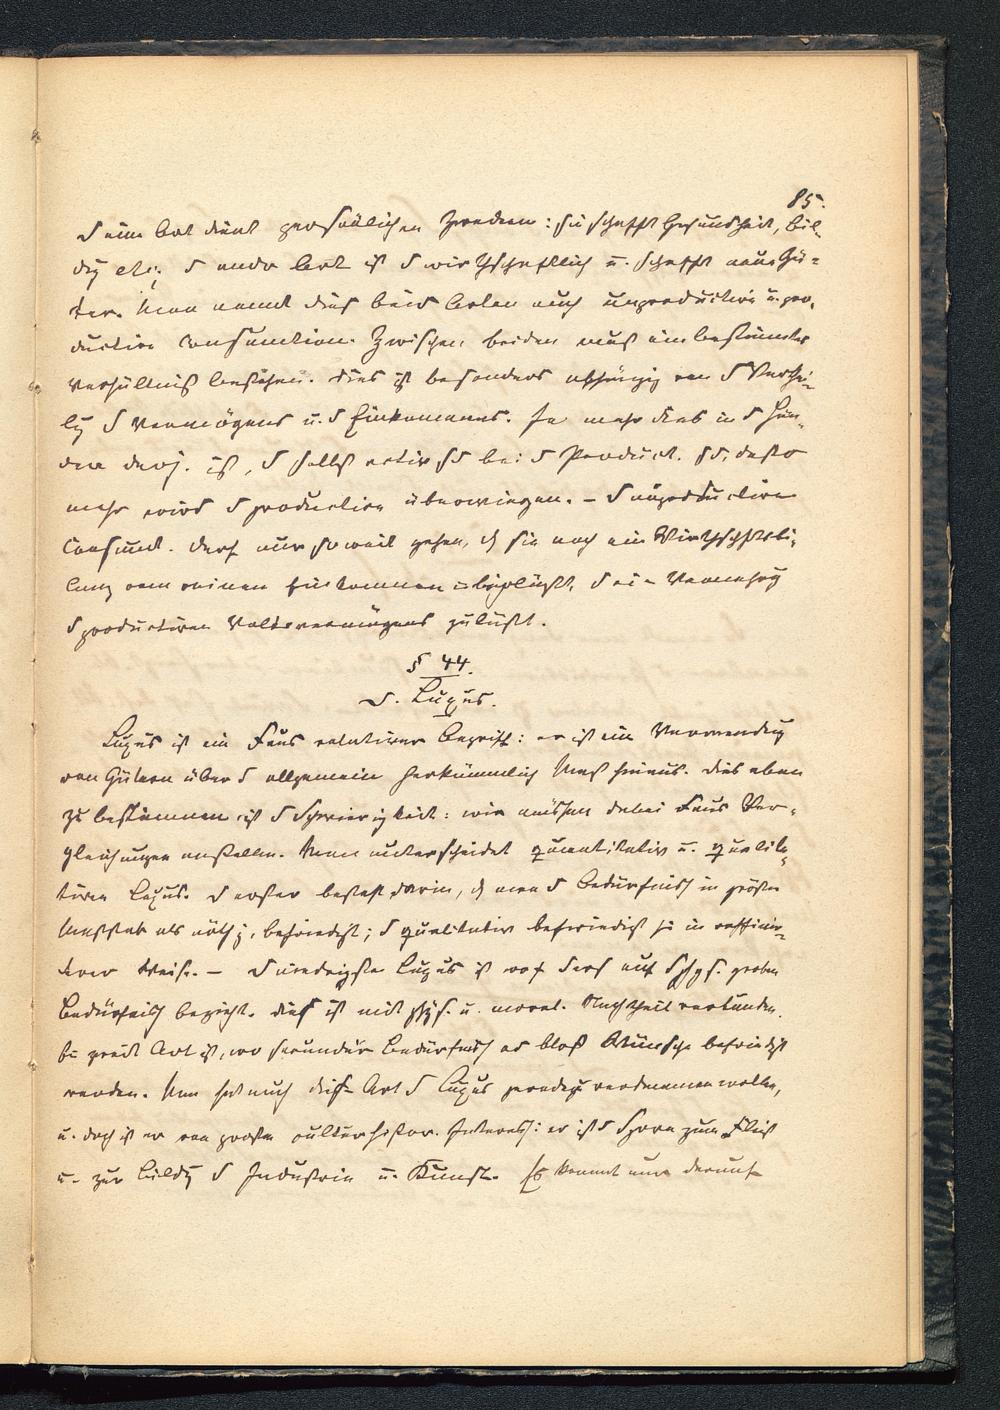 85.
D eine Art dient persönlichen Zwecken: sie schafft Gesundheit, Bil-
dg etc; D andr Art ist D wirthschaftlich u. schafft neue Gü-
ter. Man nennt diese beid Arten auch unproductive u. pro-
ductive Consumtion. Zwischen beiden muß ein bestimmtes
Verhältniß bestehen. Dies ist besonders abhängig von D Verthei-
lg D Vermögens u. D Einkommens. Je mehr dies in D Hän-
den derj. ist, D selbst activ sd bei D Product. sd, desto
mehr wird D productive überwiegen. – D unproductive
Consumt. darf nur so weit gehen, ß sie noch ein
vom reinen Einkommen D eine Vermehrg
D productiven Volksvermögens zuläßt.
§ 44.
D. Luxus.
Luxus ist ein relativer Begriff: er ist eine Verwendg
von Gütern über D allgemein herkömmlich Maß hinaus. Dies eben
zu bestimmen ist D Schwierigkeit: wir müssen dabei Ver-
gleichungen anstellen. Man unterscheidet quantitativ u. qualita-
tiven Luxus. D erster besteht darin, ß man D Bedürfniß in größer
Maßstab als nöthig, befriedigt; D qualitativ befriedigt sie in raffinir-
terer Weise. – D niedrigste Luxus ist auf D phys. groben
Bedürfniß bezieht. Dies ist mit phys. u. moral. Nachtheil verbunden.
D zweit Art ist, wo secundär Bedürfniß od bloß Wünsche befriedigt
werden. Man hat auch diese Art D Luxus geradezu verdammen wollen,
u. doch ist er von großem culturhistor. Interesse: er ist D Sporn zum Fleiß
u. zur Bildg D Industrie u. Kunst. Es kommt nur darauf